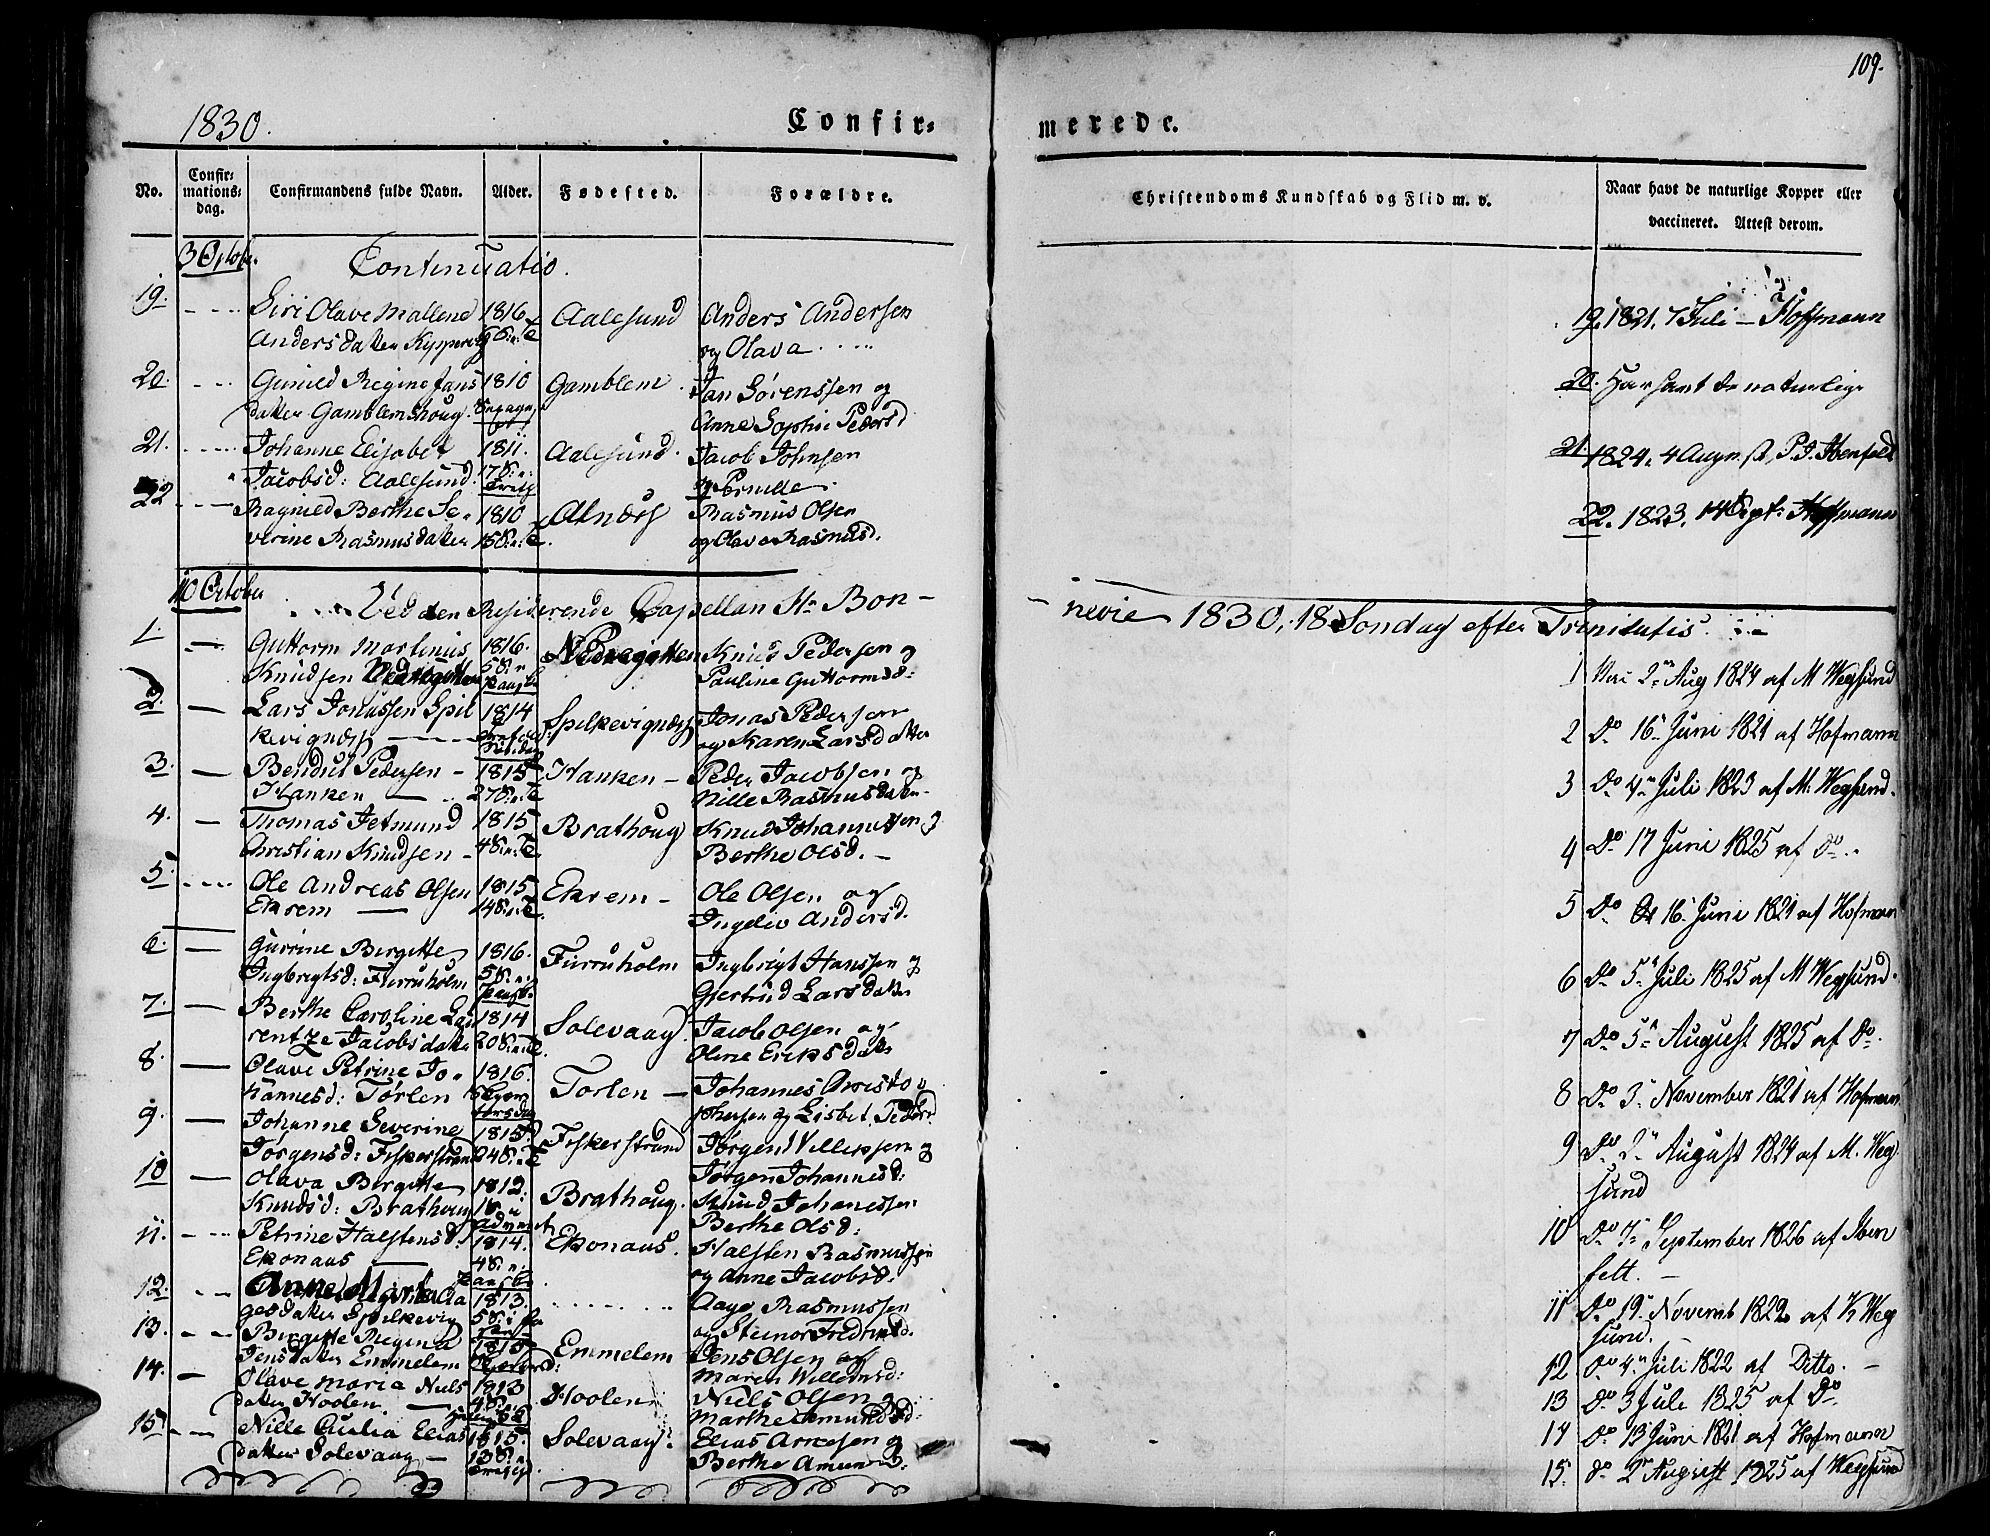 109.
1830.
Confir=
merede.
No.
Confir=
mations=
dag.
Confirmandens fulde Navn.
Alder.
Fødested.
Forældre.
Christendoms Kundskab og Flid m. v.
Naar havt de naturlige Kopper eller
vaccineret. Attest derom.
3 October
Continuatio.
19. Siri Olave Mallene 1816 Aalesund Anders Andersen
Andersdatter og Olava
19. 1821, 7 Juli - Hoffmann
20. Gunild Regine Jans 1810 Gamblem. Jan Sørenssen og
datter Gamblemshoug. Anne Sophie Pedersd
20. Har havt de naturlige
21. Johanne Elisabet 1811. Aalesund. Jacob Johnsen
Jacobsd: Aalesund. og Pernille.
21. 1824, 4 August, P. J. Ibenfeldt
22 Ragnild Berthe Se= 1810 Alnæs Rasmus Olsen
verine Rasmusdatter og Olava Rasmusd.
22. 1823, 14 Sept. Hoffmann
10 October
Ved den Residerende Capellan Hr. Bon-
nevie 1830, 18 Søndag efter Trinitatis.
1. Guttorm Martinus 1816. Nedregotten Knud Pedersen og
Knudsen Pauline Guttormsd:
1 2 Aug 1824 af M Wegsund
2. Lars Jonassen Spil 1814 Spilkevignæs Jonas Pedersen
kevignæs og Karen Larsdatter
2 Do 16 Juni 1821 af Hofmann
3. Bendut Pedersen - 1815 Hanken - Peder Jacobsen og
Hanken Nille Rasmusdatter
3 Do 4 Juli 1823 af M. Wegsund.
4. Thomas Jetmund 1815 Brathoug Knud Johannessen og
Christian Knudsen - Berthe Olsd. -
4 Do 17 Juni 1825 af Do.
5. Ole Andreas Olsen 1815 Ekrem - Ole Olsen og
Ekrem Ingeliv Andersd.
5 Do 16 Juni 1821 af Hofmann
6. Gurine Birgitte 1816. Furruholm Ingbrigt Hanssen og
Ingbrigtsd: Furruholm Gjertrud Larsdatter
6 Do 5 Juli 1825 af M Wegsund.
7. Berthe Caroline Lau 1814 Solevaag Jacob Olsen og
rentze Jacobsdatter Oline Eriksdatter
7 Do 5 August 1825 af Do.
8. Olave Petrine Jo= 1816. Torlen Johannes Christo
hannesd: Tørlen phersen og Lisbet Pedersd
8 Do 3 November 1821 af Hofmann
9. Johanne Severine 1815 Fiskerstrand Jørgen Willumsen og
Jørgensd: Fiskerstrand Jørgen Johannesd:
9 Do 2 August 1824 af M. Weg
sund
10 Olava Birgitte 1812. Brathoug. Knud Johanessen
Knudsd: Brathoug Berthe Olsd:
10 Do 7 September 1826 af Iben
felt.
11. Petrine Halstensd. 1814. Ekonaus. Halsten Rasmussen
Ekonaus og Anne Jacobsd.
11 Do 19 Novemb 1822 af K Weg
sund.
12. Anne Marta Aa 1813. Aage Rasmussen
gesdatter Spilkevig og Steinor Fredriksd.
12 Do 4 Juli 1822 af Ditto. -
13. Birgitte Regina 1815 Emmelem Jens Olsen og
Jensdatter Emmelem Maren Willumsd:
13 Do 3 Juli 1825 af Do
14. Olave Maria Niels 1813 Hoolen Niels Olsen og
datter Hoolen. Marthe
14 Do 13 Juni 1821 af Hofmann
15 Nille Elias 1815. Solevaag: Elias Arnesen og
datter Solevaag - Berthe Amundsd:
15. do 2 August 1825 af Wegsund